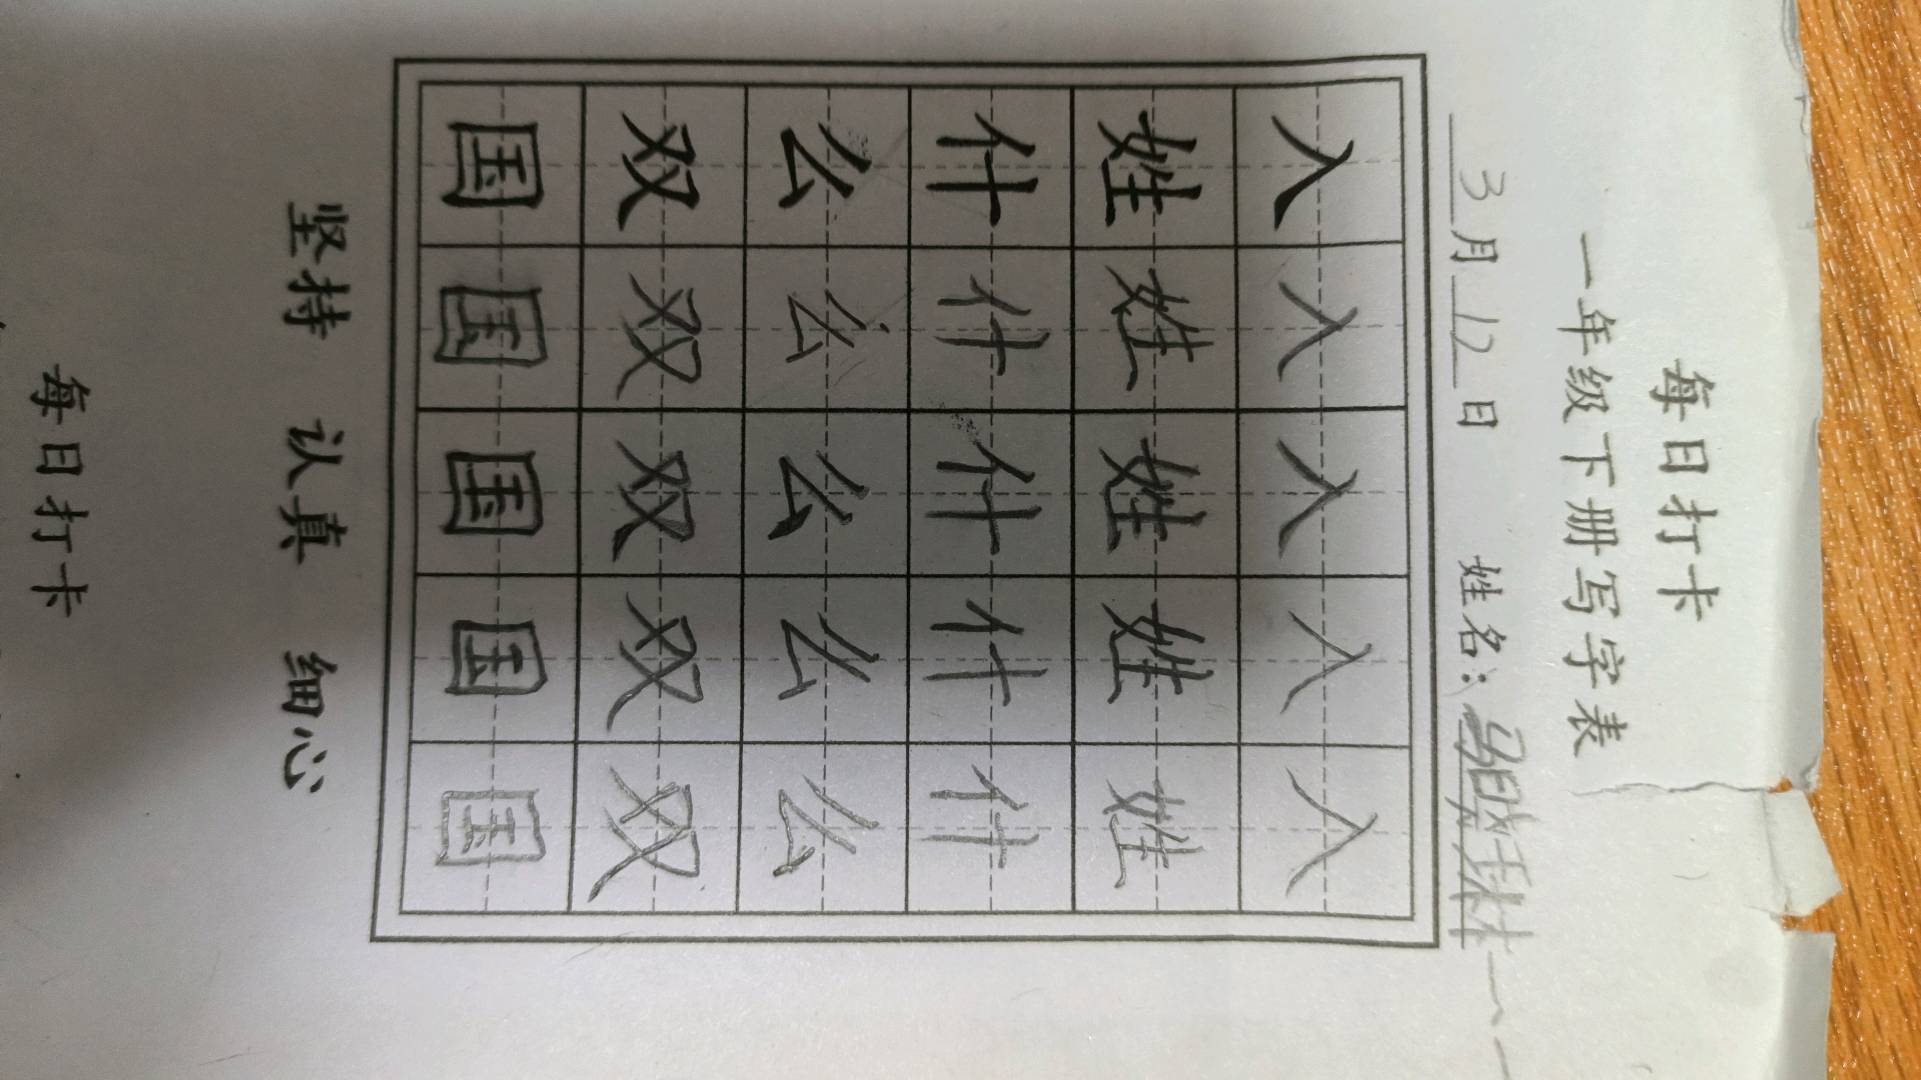 每日打卡
一年级下册写字表
3月12日 姓名:
入 入 入 入 入
姓 姓 姓 姓 姓
什 什 什 什 什
么 么 么 么 么
双 双 双 双 双
国 国 国 国 国
坚持 认真 细心
每日打卡